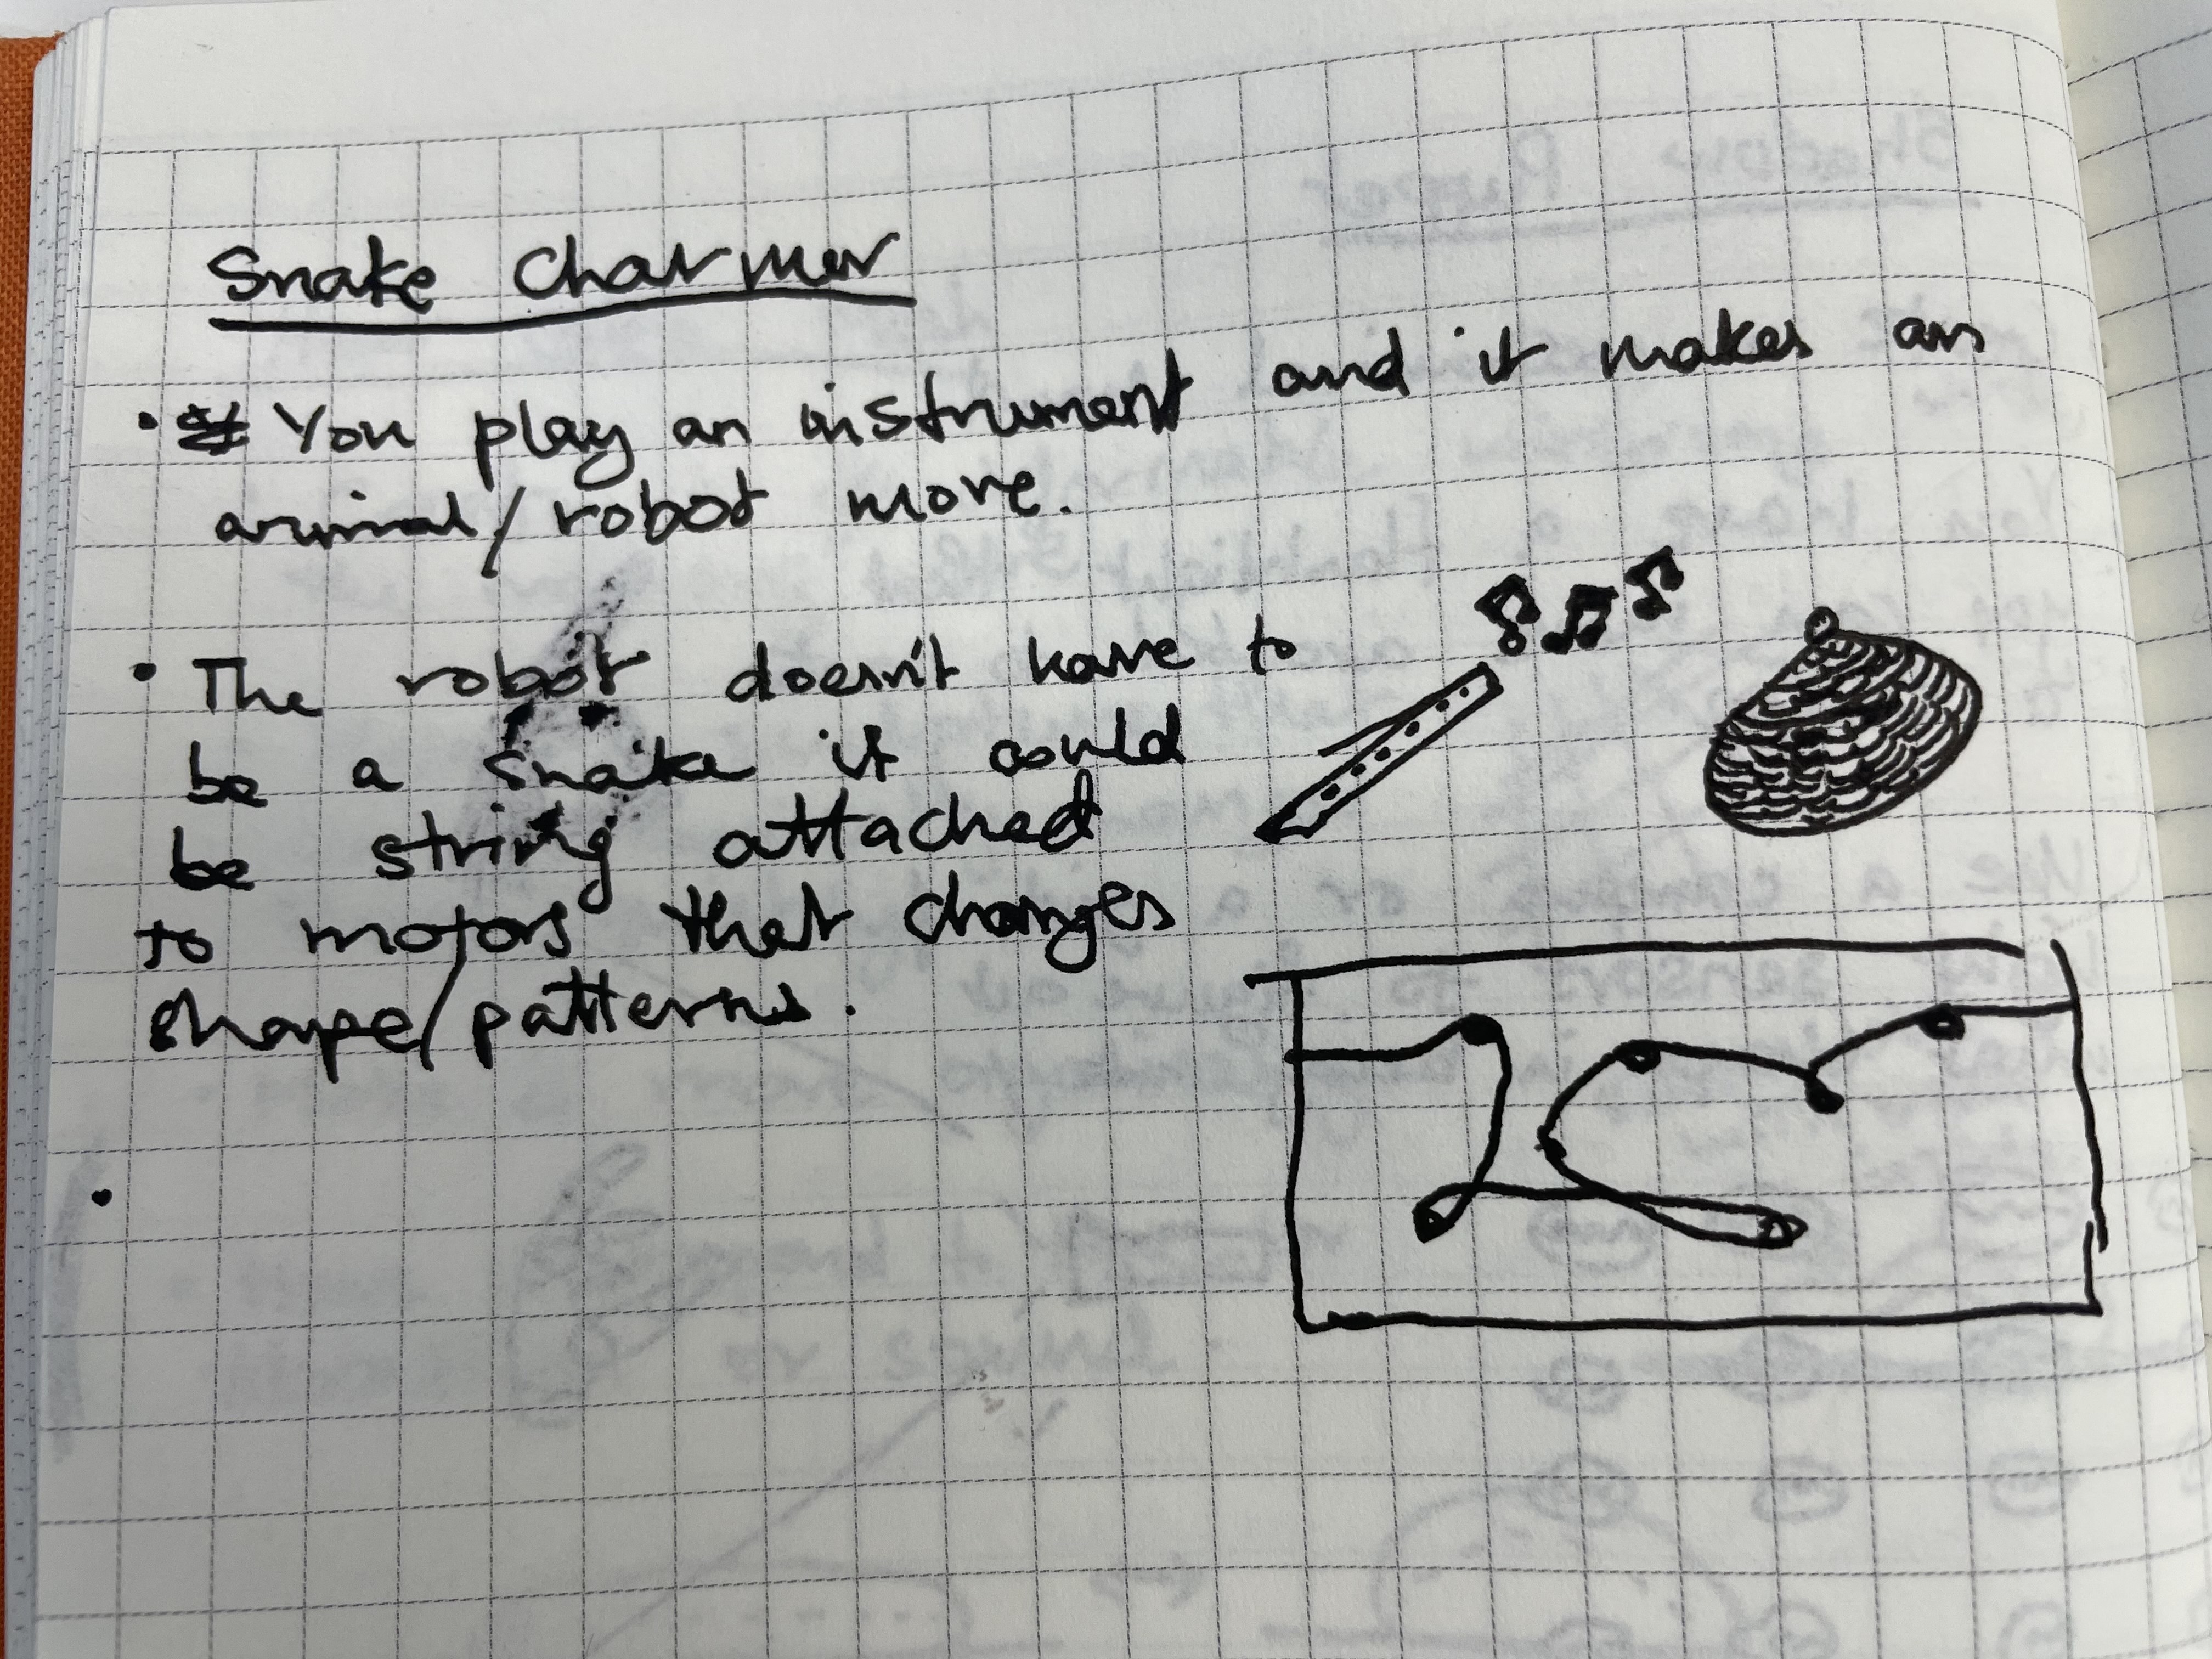 Snake Charmer
• You play an instrument and it makes an
animal/robot move.
• The robot doesn't have to
be a snake it could
be string attached
to motors that changes
shape/patterns.
•